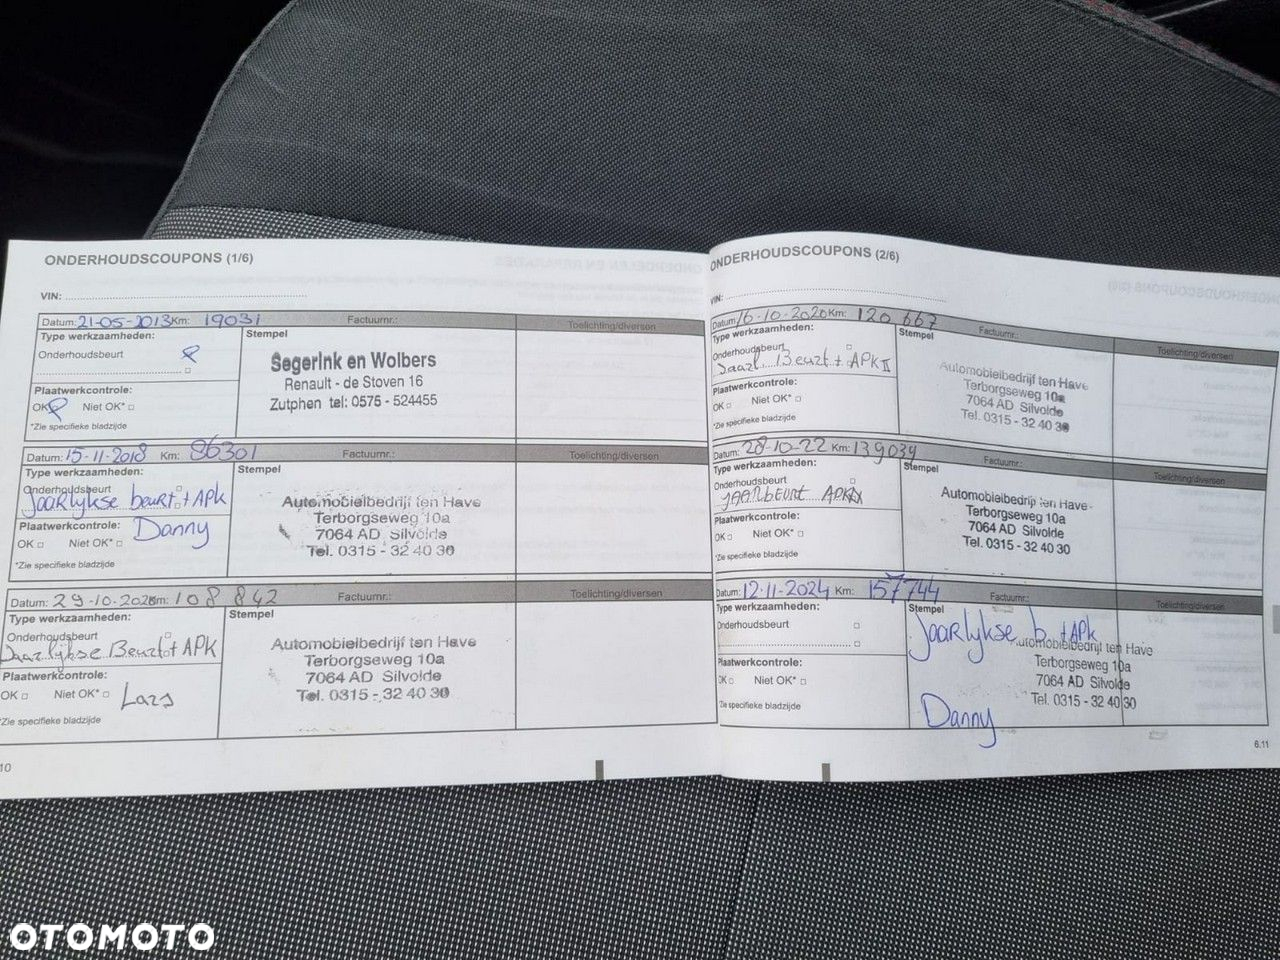 ONDERHOUDSCOUPONS (1/6)
VIN:
Datum: 21-05-2013 Km: 19031 Factuurnr.: Toelichting/diversen
Type werkzaamheden:
Stempel
Onderhoudsbeurt
Segerink en Wolbers
Renault - de Stoven 16
Zutphen tel: 0575 - 524455
Plaatwerkcontrole:
OK Niet OK*
*Zie specifieke bladzijde
Datum: 15-11-2018 Km: 86301 Factuurnr.: Toelichting/diversen
Type werkzaamheden:
Stempel
Onderhoudsbeurt
Jaarlijkse beurt + APK
Automobielbedrijf ten Have
Terborgseweg 10a
7064 AD Silvolde
Tel. 0315 - 32 40 30
Plaatwerkcontrole:
Danny
OK Niet OK*
*Zie specifieke bladzijde
Datum: 29-10-202 Km: 108 842 Factuurnr.: Toelichting/diversen
Type werkzaamheden:
Stempel
Onderhoudsbeurt
Jaarlijkse Beurt + APK
Automobielbedrijf ten Have
Terborgseweg 10a
7064 AD Silvolde
Tel. 0315 - 32 40 30
Plaatwerkcontrole:
OK Niet OK*
Lars
*Zie specifieke bladzijde
10
ONDERHOUDSCOUPONS (2/6)
VIN:
Datum: 16-10-2020 Km: 120 667 Factuurnr.: Toelichting/diversen
Type werkzaamheden:
Stempel
Onderhoudsbeurt
Jaarl. Beurt + APK II
Automobielbedrijf ten Have
Terborgseweg 10a
7064 AD Silvolde
Tel. 0315 - 32 40 30
Plaatwerkcontrole:
OK Niet OK*
*Zie specifieke bladzijde
Datum: 28-10-22 Km: 139034 Factuurnr.: Toelichting/diversen
Type werkzaamheden:
Stempel
Onderhoudsbeurt
JAARBEURT APK
Automobielbedrijf ten Have
Terborgseweg 10a
7064 AD Silvolde
Tel. 0315 - 32 40 30
Plaatwerkcontrole:
OK Niet OK*
*Zie specifieke bladzijde
Datum: 12-11-2024 Km: 157744 Factuurnr.: Toelichting/diversen
Type werkzaamheden:
Stempel
Onderhoudsbeurt
Jaarlijkse b. + APK
Automobielbedrijf ten Have
Terborgseweg 10a
7064 AD Silvolde
Tel. 0315 - 32 40 30
Plaatwerkcontrole:
OK Niet OK*
*Zie specifieke bladzijde
Danny
6.11
OTOMOTO